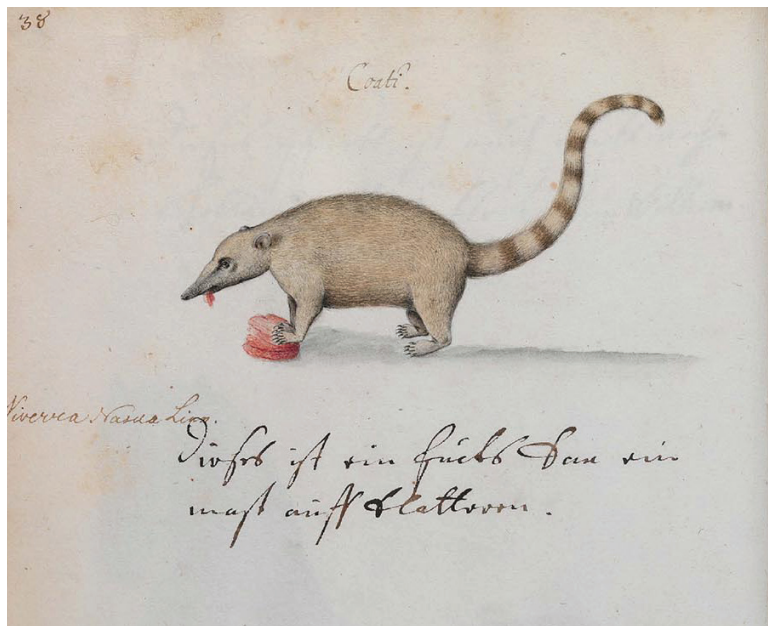 38
Coati.
Viverra Nasua Linn.
Dieses ist ein fuchs Kan ein
mast auff Klatteren.